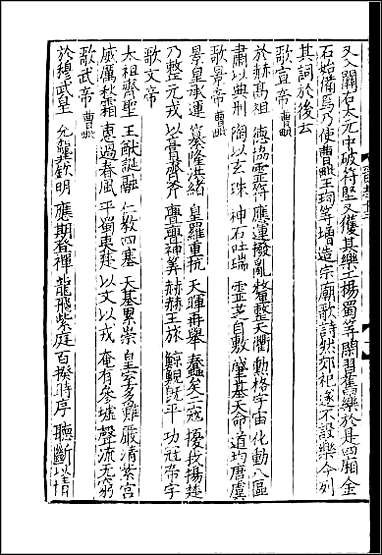 又入關右太元中破符堅又獲其樂工楊蜀等閑習舊樂於是四廂金
石始備焉乃使曹毗王珣等增造宗廟歌詩然郊祀遂不設樂今列
其詞於後云
歌宣帝 曹毗
於赫高祖 德協靈符 應運撥亂 釐整天衢 勳格宇宙 化動八區
肅以典刑 陶以玄珠 神石吐瑞 靈芝自敷 肇基天命 道均唐虞
歌景帝 曹毗
景皇承運 纂隆洪緒 皇羅重抗 天暉再舉 蠢矣二寇 擾我揚楚
乃整元戎 以膏齊斧 亹亹神筭 赫赫王旅 鯨鯢既平 功冠帝宇
歌文帝
太祖齊聖 王猷誕融 仁教四塞 天基累崇 皇室多難 嚴清紫宮
威厲秋霜 惠過春風 平蜀夷楚 以文以戎 奄有參墟 聲流無窮
歌武帝 曹毗
於穆武皇 允龔欽明 應期登禪 龍飛紫庭 百揆時序 聽斷以情